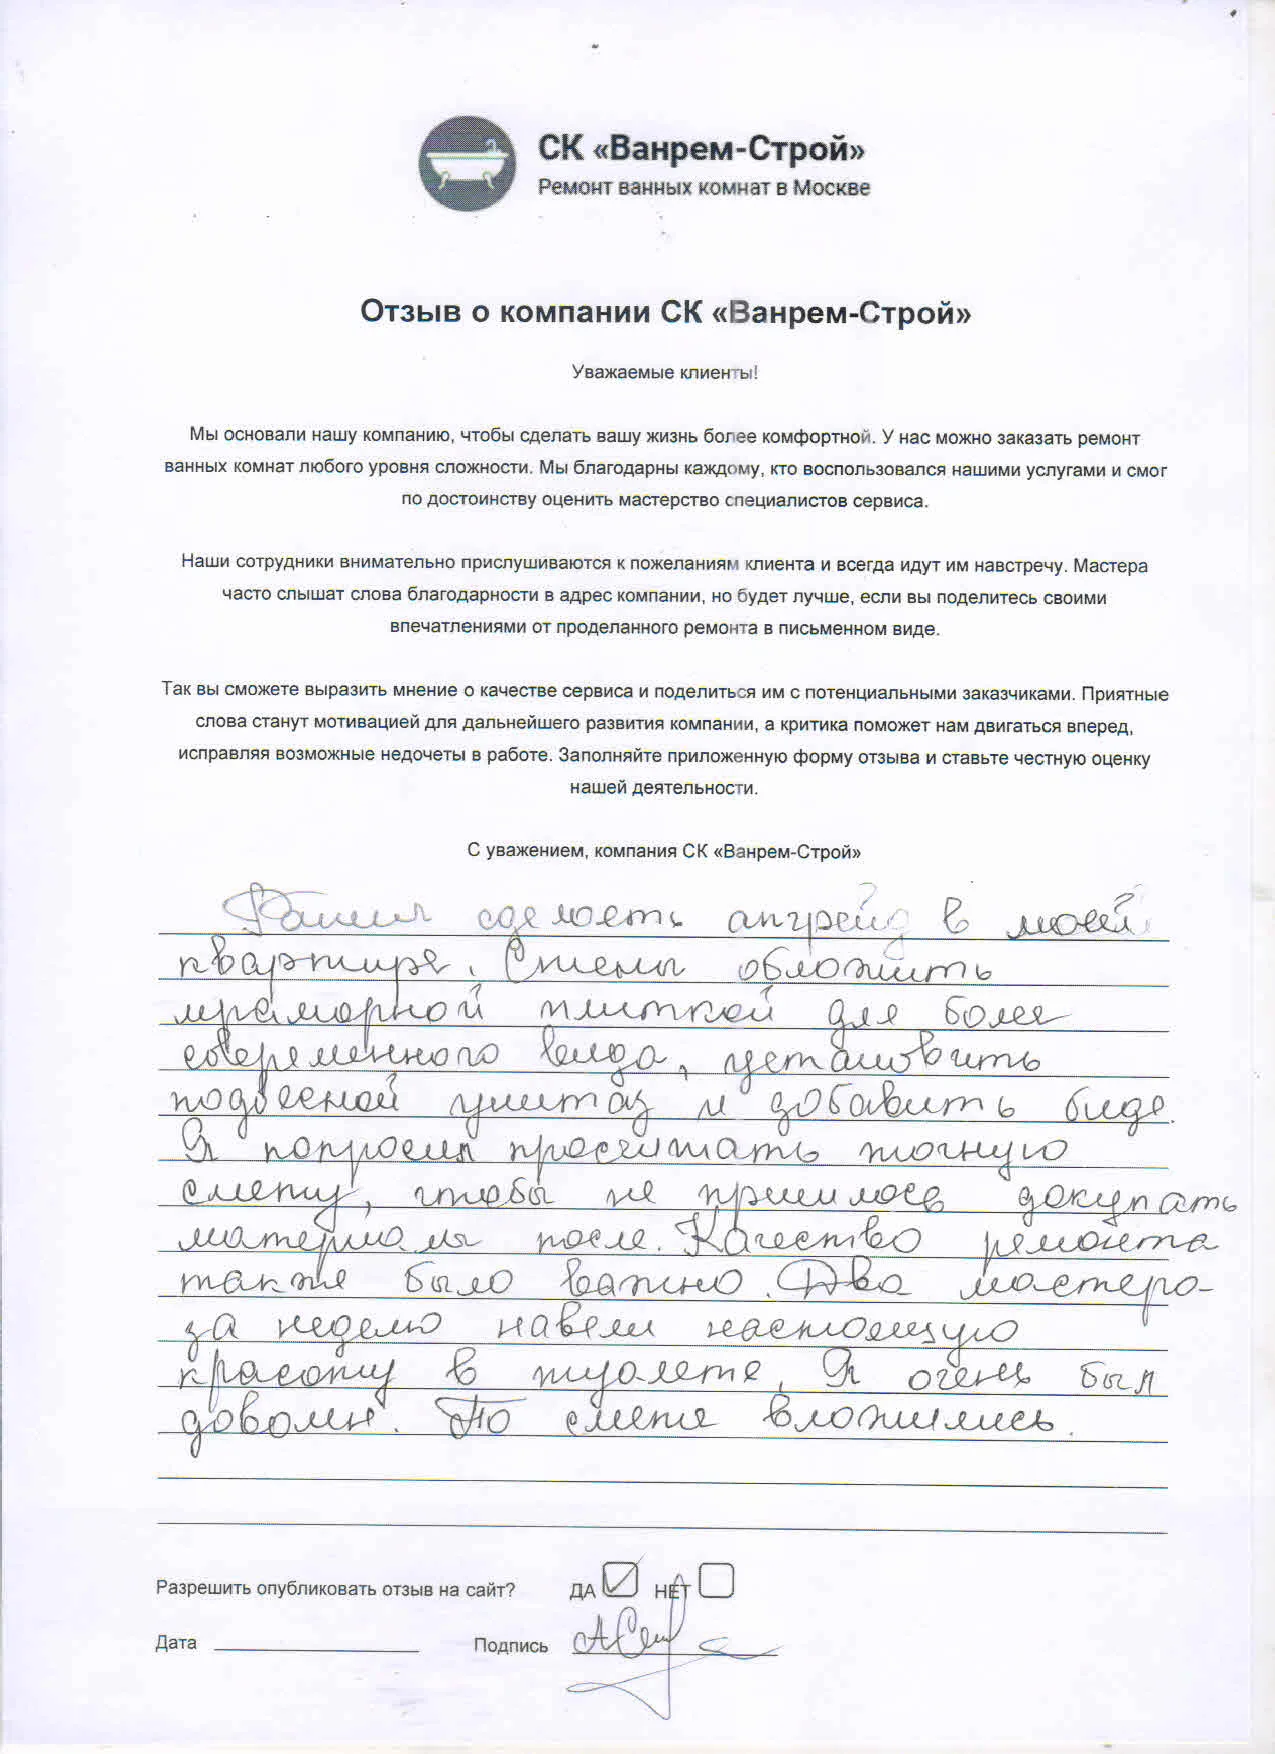 СК «Ванрем-Строй»
Ремонт ванных комнат в Москве
Отзыв о компании СК «Ванрем-Строй»
Уважаемые клиенты!
Мы основали нашу компанию, чтобы сделать вашу жизнь более комфортной. У нас можно заказать ремонт
ванных комнат любого уровня сложности. Мы благодарны каждому, кто воспользовался нашими услугами и смог
по достоинству оценить мастерство специалистов сервиса.
Наши сотрудники внимательно прислушиваются к пожеланиям клиента и всегда идут им навстречу. Мастера
часто слышат слова благодарности в адрес компании, но будет лучше, если вы поделитесь своими
впечатлениями от проделанного ремонта в письменном виде.
Так вы сможете выразить мнение о качестве сервиса и поделиться им с потенциальными заказчиками. Приятные
слова станут мотивацией для дальнейшего развития компании, а критика поможет нам двигаться вперед,
исправляя возможные недочеты в работе. Заполняйте приложенную форму отзыва и ставьте честную оценку
нашей деятельности.
С уважением, компания СК «Ванрем-Строй»
сделать апгрейд в моей
квартире. Стены обложить
мраморной плиткой для более
современного вида, установить
подвесной унитаз и добавить биде.
Я попросил просчитать точную
смету, чтобы не пришлось докупать
материалы после. Качество ремонта
также было важно. Два мастера
за неделю навели настоящую
красоту в туалете. Я очень был
доволен. По смете вложились.
Разрешить опубликовать отзыв на сайт? ДА НЕТ
Дата Подпись